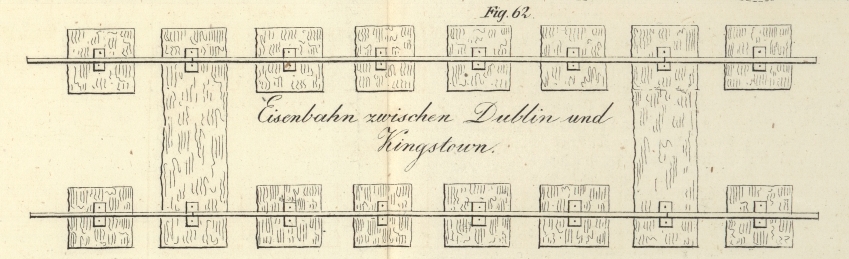 Fig. 62.
Eisenbahn zwischen Dublin und
Kingstown.